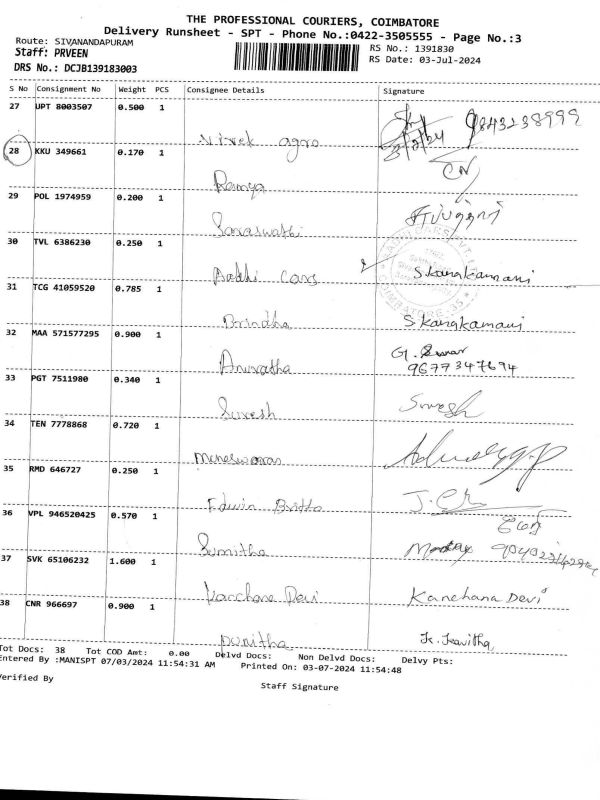 THE PROFESSIONAL COURIERS, COIMBATORE
Delivery Runsheet - SPT - Phone No.:0422-3505555 - Page No.:3
Route: SIVANANDAPURAM
RS No.: 1391830
Staff: PRVEEN
RS Date: 03-Jul-2024
DRS No.: DCJB139183003
S No Consignment No Weight PCS Consignee Details Signature
27 UPT 8003507 0.500 1
Vivek agro 9843238999
28 KKU 349661 0.170 1
Ramya
29 POL 1974959 0.200 1
Saraswathi
30 TVL 6386230 0.250 1
Cars Skangkamani
31 TCG 41059520 0.785 1
Brindha Skangkamani
32 MAA 571577295 0.900 1
G. Kumar
Anuratha 9677347694
33 PGT 7511980 0.340 1
Suresh Suresh
34 TEN 7778868 0.720 1
35 RMD 646727 0.250 1
Edwin Britto
36 VPL 946520425 0.570 1
Sumitha
37 SVK 65106232 1.600 1
Kanchana Devi Kanchana Devi
38 CNR 966697 0.900 1
K. Kavitha
Tot Docs: 38 Tot COD Amt: 0.00 Delvd Docs: Non Delvd Docs: Delvy Pts:
Entered By :MANISPT 07/03/2024 11:54:31 AM Printed On: 03-07-2024 11:54:48
Verified By
Staff Signature